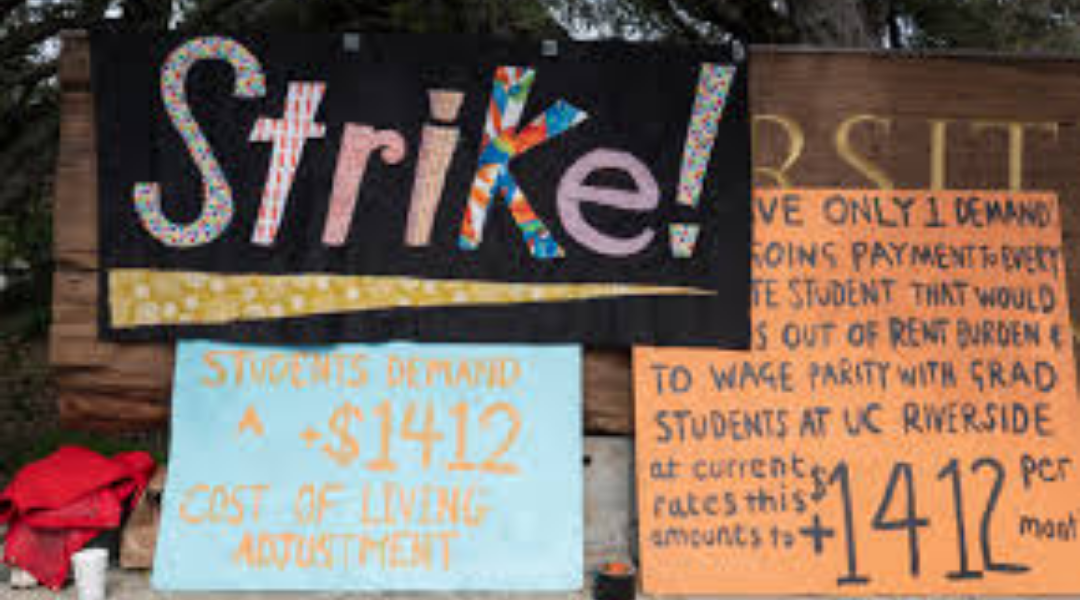 Strike!
RSIT
VE ONLY 1 DEMAND
GOING PAYMENT TO EVERY
TE STUDENT THAT WOULD
S OUT OF RENT BURDEN &
TO WAGE PARITY WITH GRAD
STUDENTS AT UC RIVERSIDE
at current
rates this
amounts to +$1412 per
STUDENTS DEMAND
A +$1412
COST OF LIVING
ADJUSTMENT